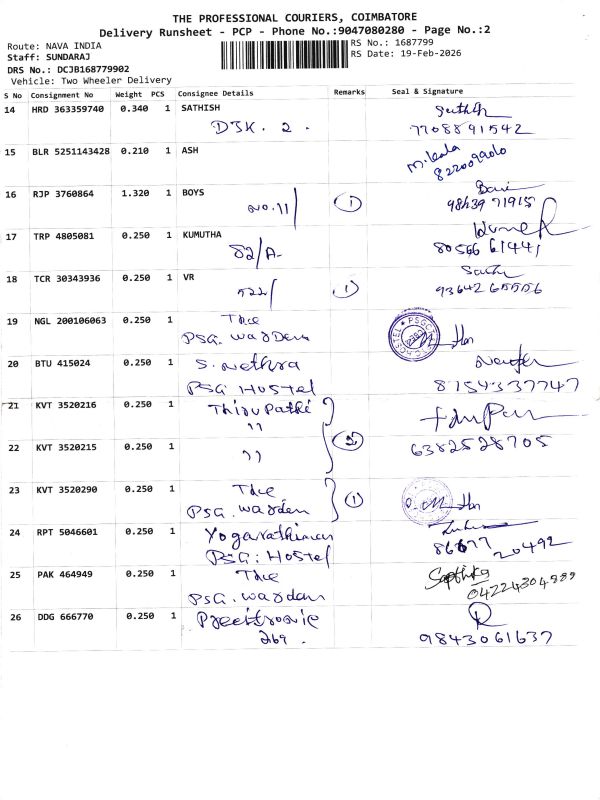 THE PROFESSIONAL COURIERS, COIMBATORE
Delivery Runsheet - PCP - Phone No.:9047080280 - Page No.:2
Route: NAVA INDIA
Staff: SUNDARAJ
DRS No.: DCJB168779902
Vehicle: Two Wheeler Delivery
RS No.: 1687799
RS Date: 19-Feb-2026
S No Consignment No Weight PCS Consignee Details Remarks Seal & Signature
14 HRD 363359740 0.340 1 SATHISH
DSK. 2. 7708891542
15 BLR 5251143428 0.210 1 ASH
M. kala
16 RJP 3760864 1.320 1 BOYS
NO. 11/ 1 98439 71915
17 TRP 4805081 0.250 1 KUMUTHA
82/A- 80566 61441
18 TCR 30343936 0.250 1 VR
522/ 1
19 NGL 200106063 0.250 1 The
PSG. warden
20 BTU 415024 0.250 1 S. Nethra
PSG. Hostel 8154337747
21 KVT 3520216 0.250 1 Thirupathi
" 2
22 KVT 3520215 0.250 1 " 6382528705
23 KVT 3520290 0.250 1 The
PSG. warden 1
24 RPT 5046601 0.250 1
PSG. Hostel 86677 20492
25 PAK 464949 0.250 1 The
PSG. warden
26 DDG 666770 0.250 1
269. 9843061637